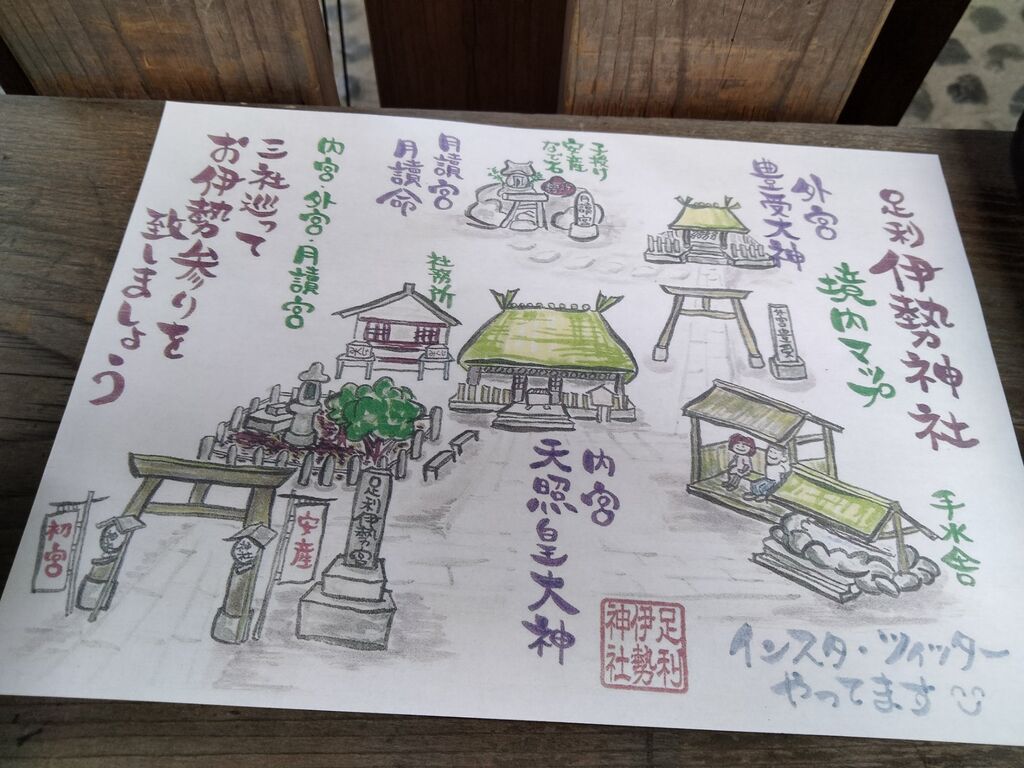 足利
伊勢神社
境内マップ
外宮
豊受大神
子授け
安産
なで石
月讀宮
月讀宮
月讀命
内宮・外宮・月讀宮
三社巡って
お伊勢参りを
致しましょう
社務所
みくじ
みくじ
内宮
天照皇大神
手水舎
初宮
安産
足利伊勢宮
足利
伊勢
神社
インスタ・ツイッター
やってます